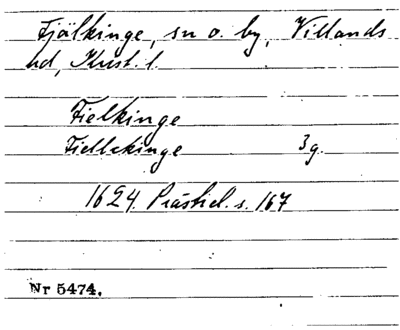 Fjälkinge, sn o. by, Villands
hd, Krist. l.
Fielkinge
Fiellekinge 3 g.
1624. Prästrel. s. 167
Nr 5474.